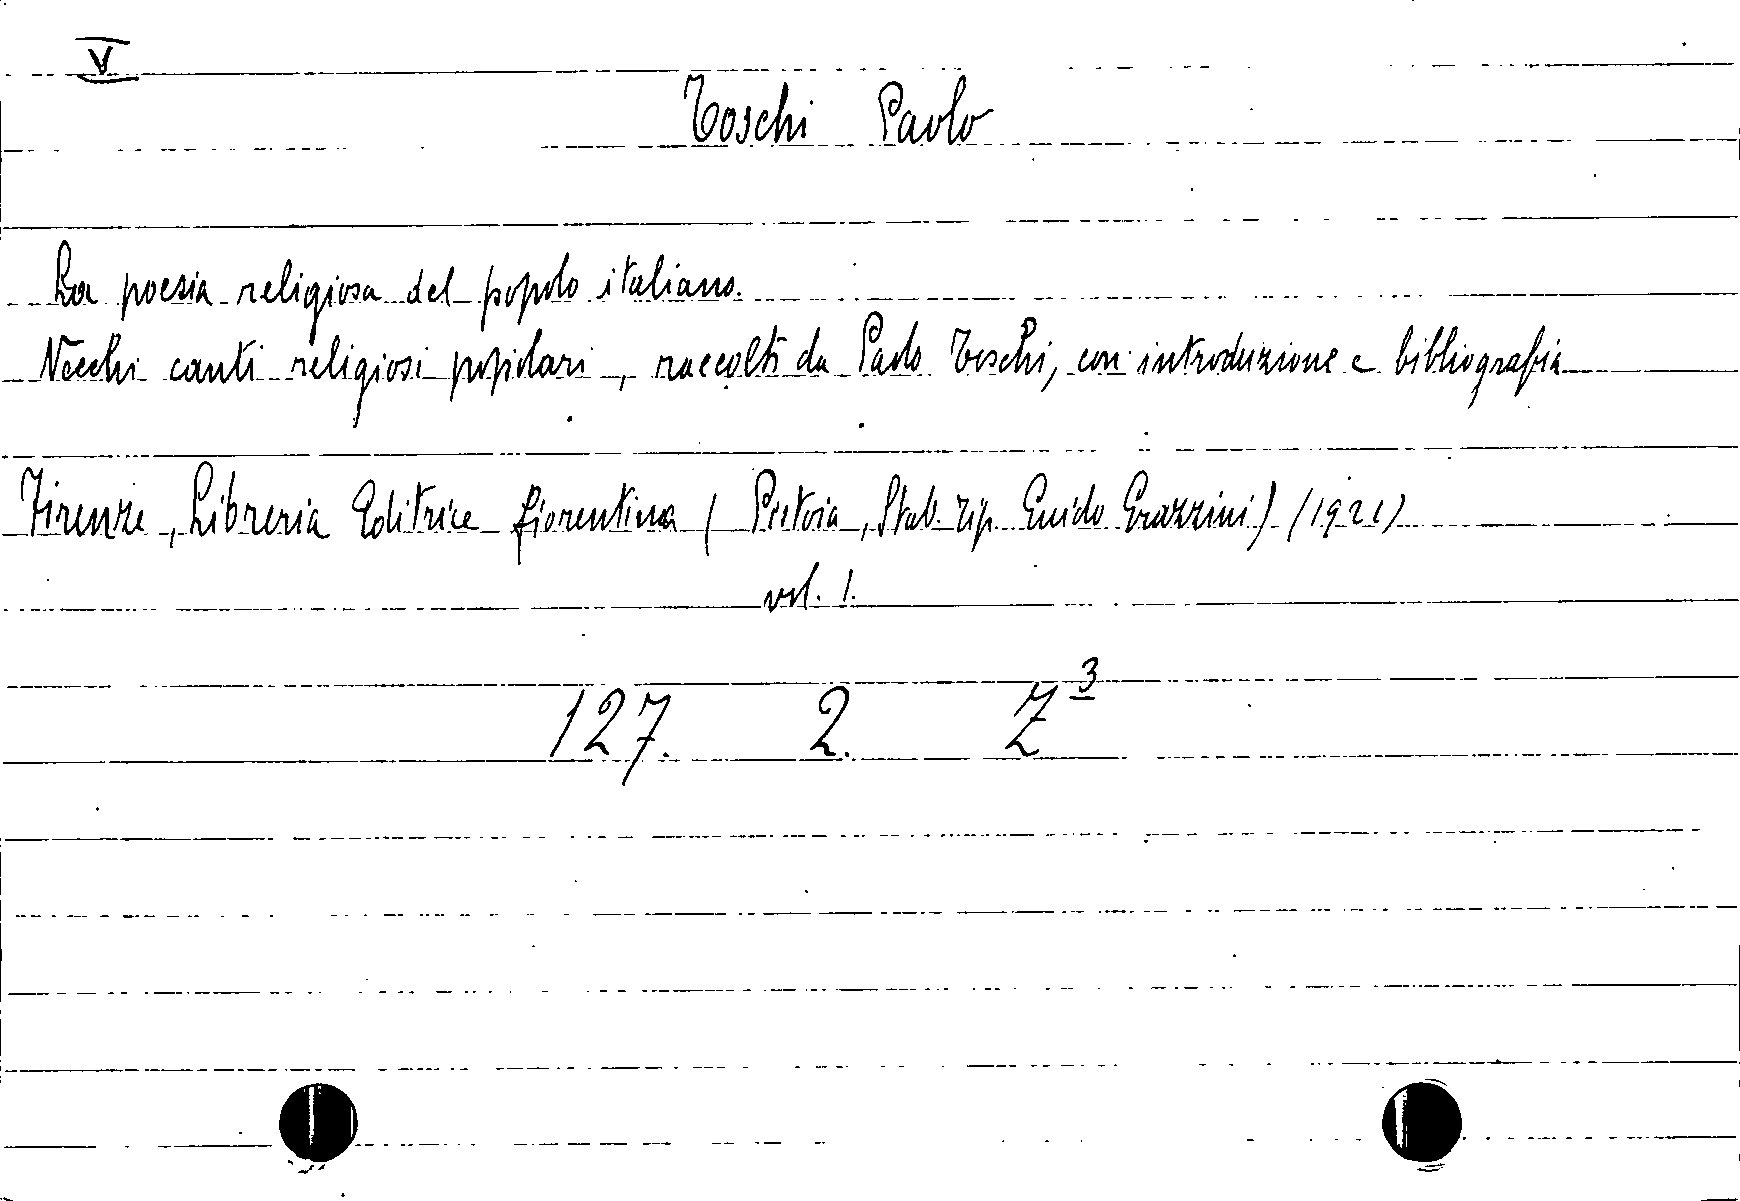 V
Toschi Paolo
La poesia religiosa del popolo italiano.
Vecchi canti religiosi popolari, raccolti da Paolo Toschi, con introduzione e bibliografia
Firenze, Libreria Editrice fiorentina (Pistoia, Stab. Tip. Guido Grazzini) (1921)
vol. 1.
127. 2. Z³